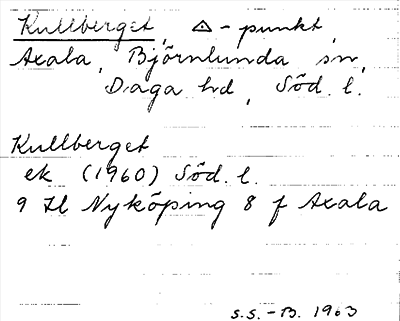 Kullberget, △-punkt,
Axala, Björnlunda sn,
Daga hd, Söd. l.
Kullberget
ek (1960) Söd. l.
9 Hl Nyköping 8 f Axala
S.S.-B. 1963